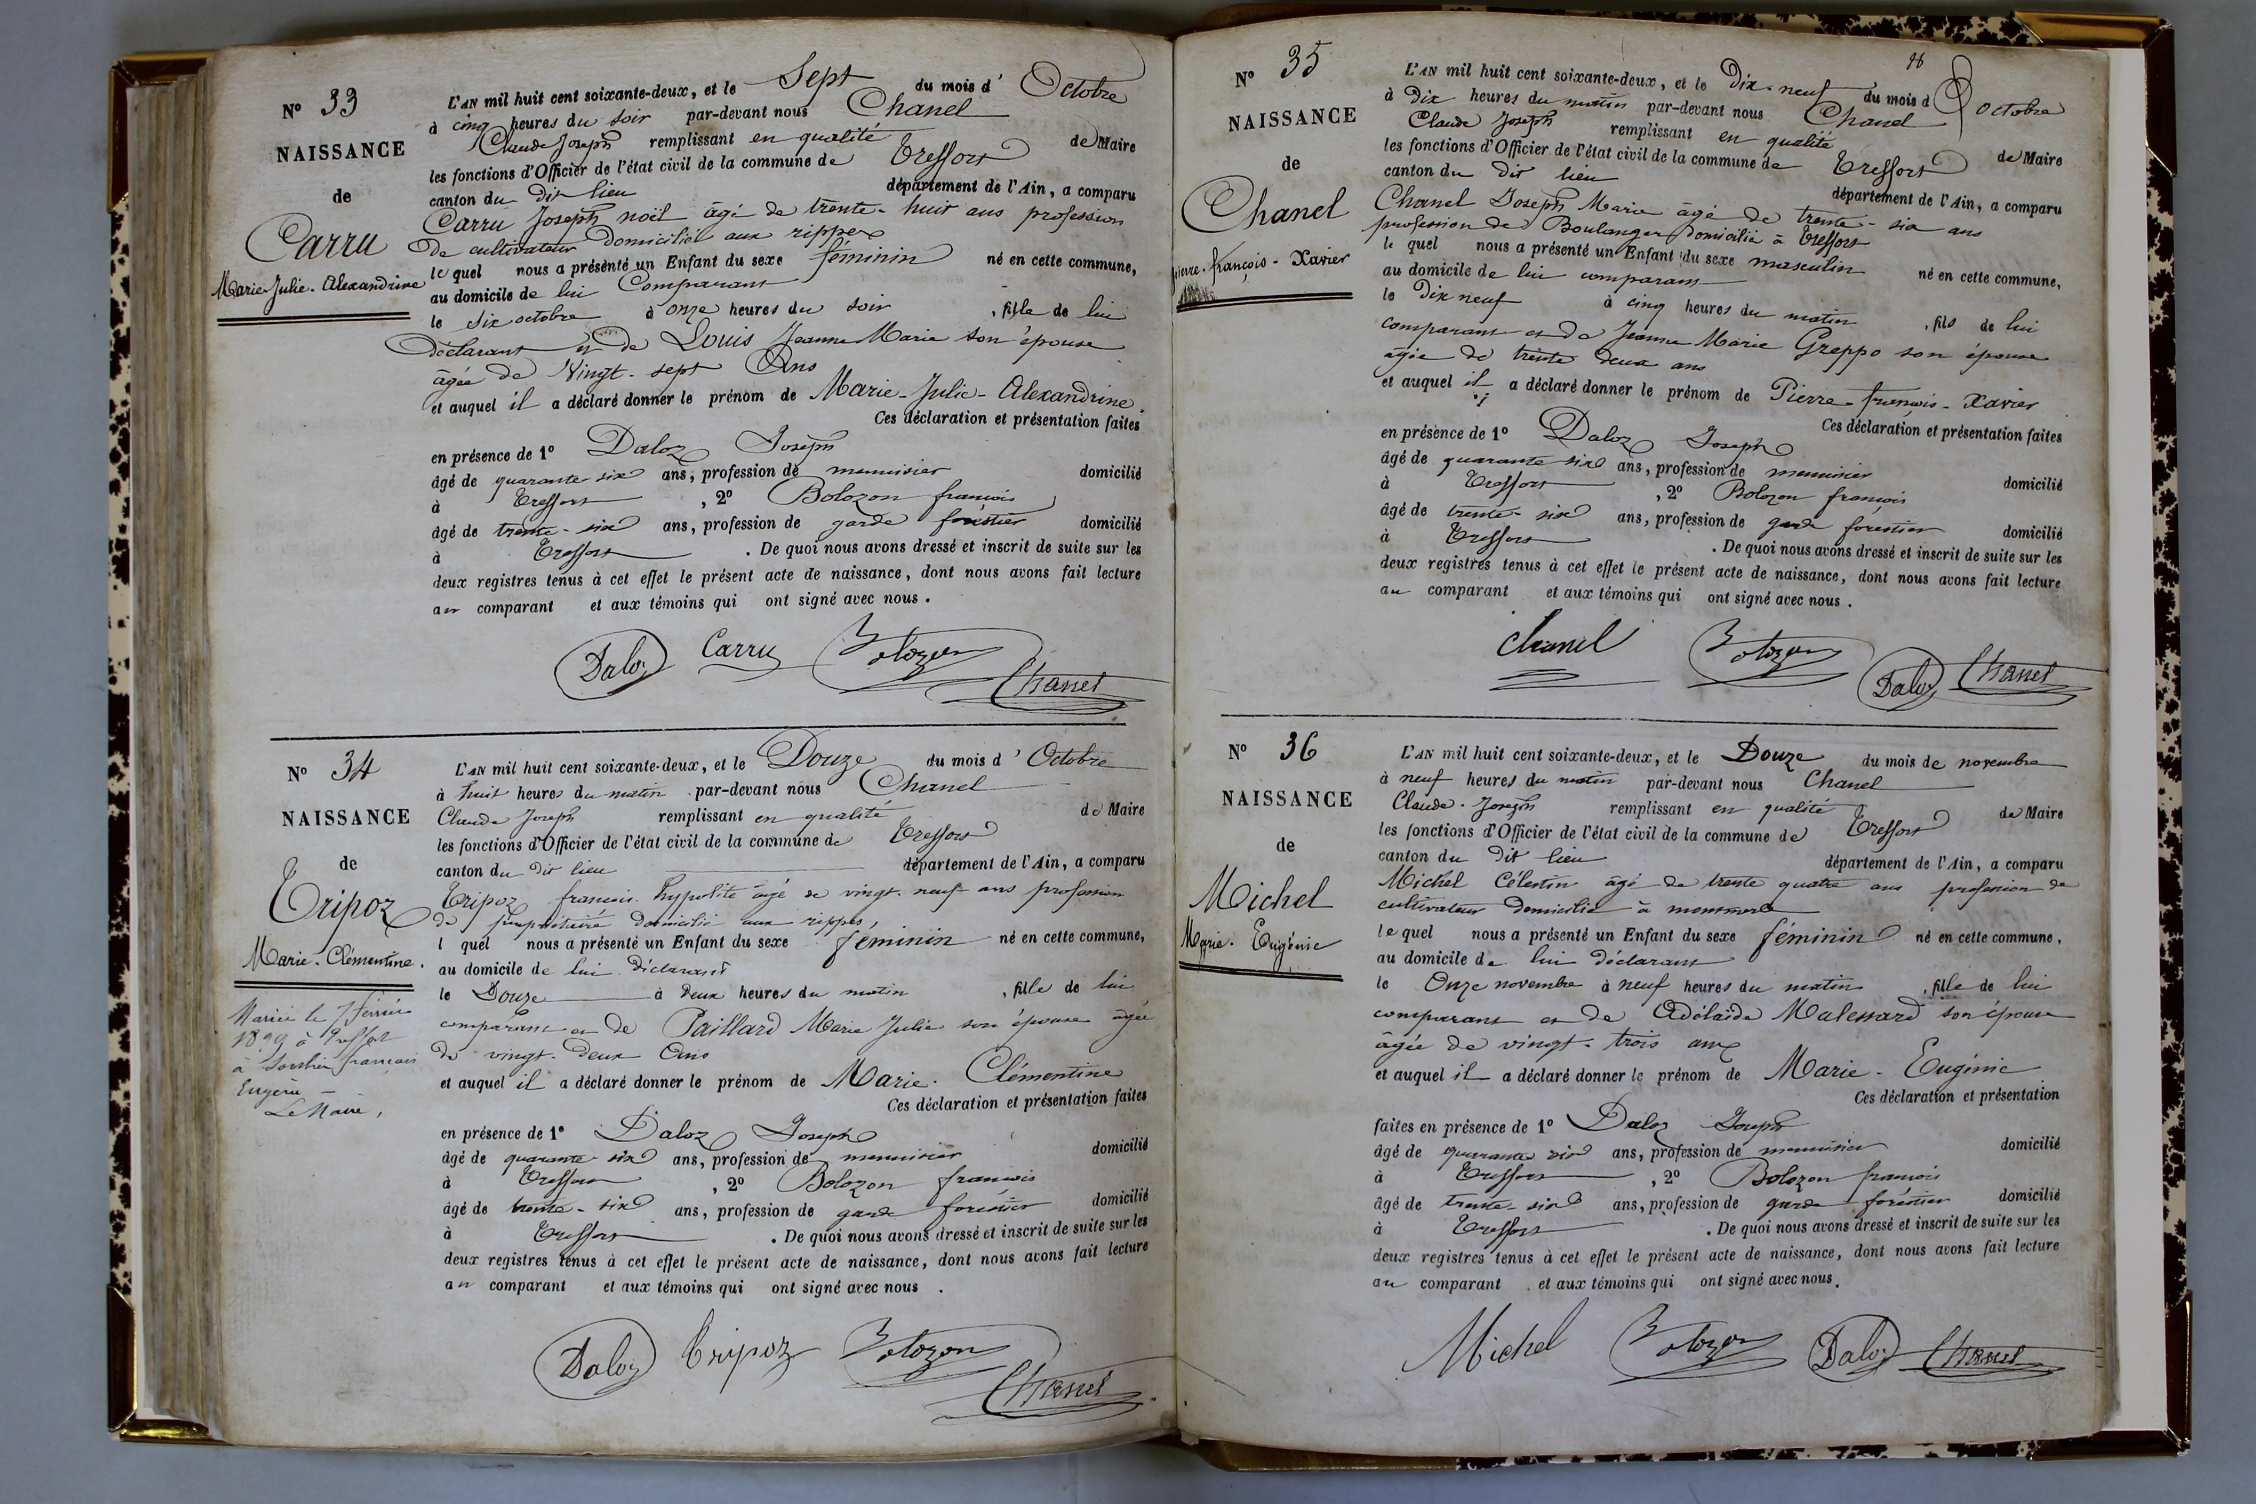 N° 33
NAISSANCE
de
Carru
Marie-Julie-Alexandrine
L'AN mil huit cent soixante-deux, et le Sept du mois d'Octobre
à cinq heures du soir par-devant nous Chanel
Claude Joseph remplissant en qualité de Maire
les fonctions d'Officier de l'état civil de la commune de Treffort
canton du dit lieu département de l'Ain, a comparu
Carru Joseph noël âgé de trente-huit ans profession
de cultivateur domicilié aux rippes
le quel nous a présenté un Enfant du sexe féminin né en cette commune,
au domicile de lui Comparant
le six octobre à onze heures du soir , fille de lui
déclarant et de Louis Jeanne Marie son épouse
âgée de Vingt-sept Ans
et auquel il a déclaré donner le prénom de Marie-Julie-Alexandrine.
Ces déclaration et présentation faites
en présence de 1° Daloz Joseph
âgé de quarante six ans, profession de menuisier domicilié
à Treffort , 2° Bolozon francois
âgé de trente-six ans, profession de garde forestier domicilié
à Treffort . De quoi nous avons dressé et inscrit de suite sur les
deux registres tenus à cet effet le présent acte de naissance, dont nous avons fait lecture
au comparant et aux témoins qui ont signé avec nous.
Daloz Carru Bolozon
Chanel
N° 34
NAISSANCE
de
Tripoz
Marie-Clémentine.
Mariée le 7 février
à Treffort
à françois
Eugène
Le Maire,
L'AN mil huit cent soixante-deux, et le Douze du mois d'Octobre
à huit heures du matin par-devant nous Chanel
Claude Joseph remplissant en qualité de Maire
les fonctions d'Officier de l'état civil de la commune de Treffort
canton du dit lieu département de l'Ain, a comparu
Tripoz francois hypolite âgé de vingt-neuf ans profession
de propriétaire domicilié aux rippes,
l quel nous a présenté un Enfant du sexe féminin né en cette commune,
au domicile de lui déclarant
le Douze à deux heures du matin , fille de lui
comparant et de Paillard Marie Julie son épouse âgée
de vingt-deux Ans
et auquel il a déclaré donner le prénom de Marie-Clémentine
Ces déclaration et présentation faites
en présence de 1° Daloz Joseph
âgé de quarante six ans, profession de menuisier domicilié
à Treffort , 2° Bolozon francois
âgé de trente-six ans, profession de garde forestier domicilié
à Treffort . De quoi nous avons dressé et inscrit de suite sur les
deux registres tenus à cet effet le présent acte de naissance, dont nous avons fait lecture
au comparant et aux témoins qui ont signé avec nous .
Daloz Tripoz Bolozon
Chanel
N° 35
NAISSANCE
de
Chanel
pierre-françois-Xavier
L'AN mil huit cent soixante-deux, et le Dix-neuf du mois d'Octobre
à Dix heures du matin par-devant nous Chanel
Claude Joseph remplissant en qualité de Maire
les fonctions d'Officier de l'état civil de la commune de Treffort
canton du dit lieu département de l'Ain, a comparu
Chanel Joseph Marie âgé de trente-six ans
profession de Boulanger domicilié à Treffort
le quel nous a présenté un Enfant du sexe masculin né en cette commune,
au domicile de lui comparant
le Dix neuf à cinq heures du matin , fils de lui
comparant et de Jeanne Marie Greppo son épouse
âgée de trente deux ans
et auquel il a déclaré donner le prénom de Pierre-françois-Xavier
Ces déclaration et présentation faites
en présence de 1° Daloz Joseph
âgé de quarante six ans, profession de menuisier domicilié
à Treffort , 2° Bolozon françois
âgé de trente-six ans, profession de garde forestier domicilié
à Treffort . De quoi nous avons dressé et inscrit de suite sur les
deux registres tenus à cet effet le présent acte de naissance, dont nous avons fait lecture
au comparant et aux témoins qui ont signé avec nous.
Chanel Bolozon Daloz Chanel
N° 36
NAISSANCE
de
Michel
Marie-Eugénie
L'AN mil huit cent soixante-deux, et le Douze du mois de novembre
à neuf heures du matin par-devant nous Chanel
Claude-Joseph remplissant en qualité de Maire
les fonctions d'Officier de l'état civil de la commune de Treffort
canton du dit lieu département de l'Ain, a comparu
Michel Célestin âgé de trente quatre ans profession de
cultivateur domicilié à
le quel nous a présenté un Enfant du sexe féminin né en cette commune,
au domicile de lui déclarant
le Onze novembre à neuf heures du matin , fille de lui
comparant et de Adélaïde Malessard son épouse
âgée de vingt-trois ans
et auquel il a déclaré donner le prénom de Marie-Eugénie
Ces déclaration et présentation
faites en présence de 1° Daloz Joseph
âgé de quarante six ans, profession de menuisier domicilié
à Treffort , 2° Bolozon francois
âgé de trente-six ans, profession de garde forestier domicilié
à Treffort . De quoi nous avons dressé et inscrit de suite sur les
deux registres tenus à cet effet le présent acte de naissance, dont nous avons fait lecture
au comparant et aux témoins qui ont signé avec nous.
Michel Bolozon Daloz Chanel